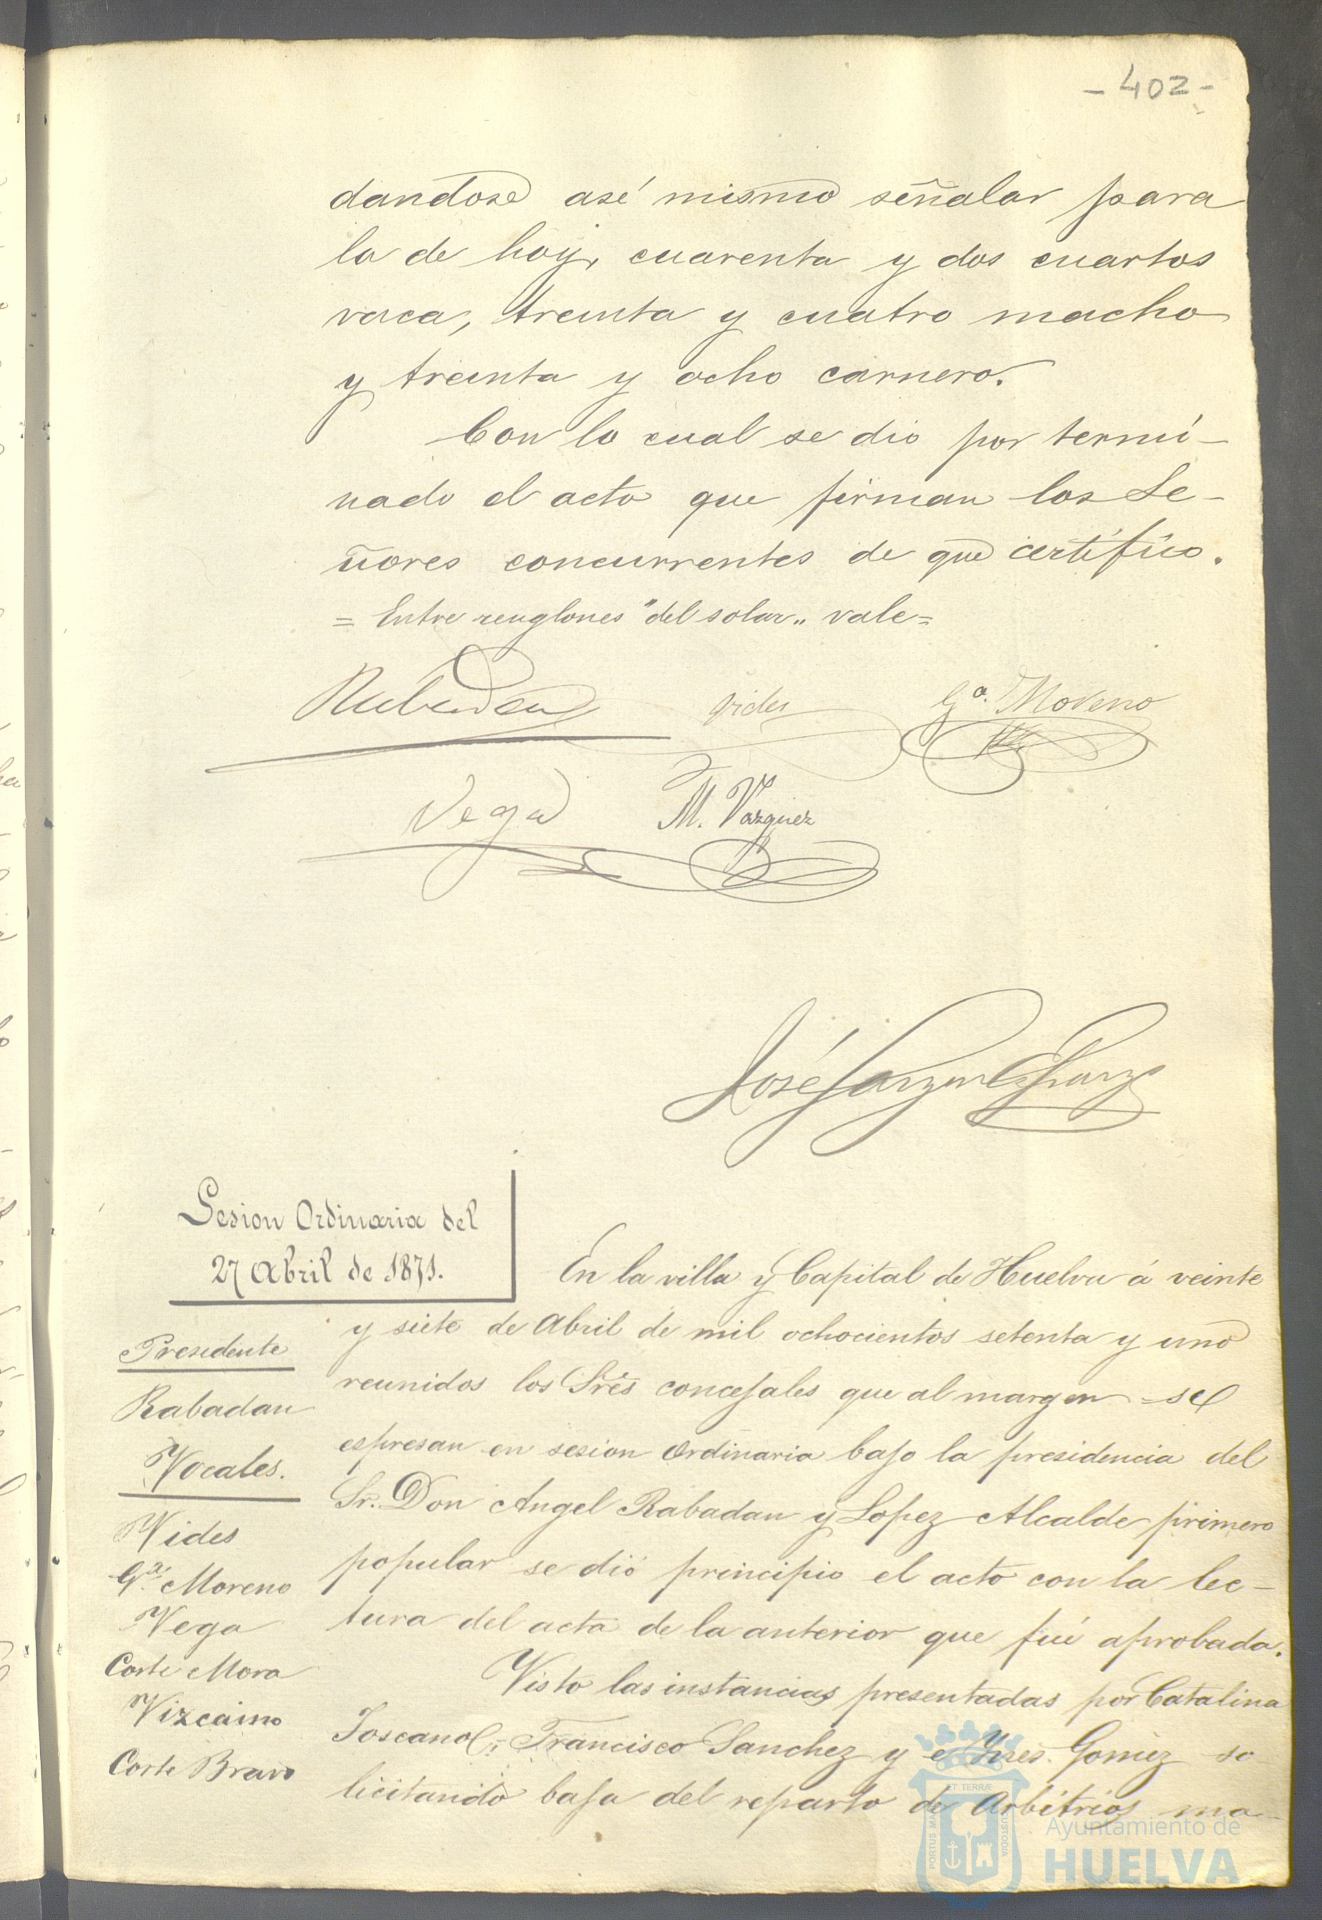 - 402 -
dandose asé mismo señalar para
la de hoy, cuarenta y dos cuartos
vaca, treinta y cuatro macho
y treinta y ocho carnero.
Con lo cual se dio por termi-
nado el acto que firman los Se-
ñores concurrentes de que certifico.
= Entre renglones "del solar" vale=
Rabadan Vides Gª. Moreno
Vega M. Vazquez
José
Sesion Ordinaria del
27 Abril de 1871.
Presidente
Rabadan
Vocales.
Vides
Gª. Moreno
Vega
Corte Mora
Vizcaino
Corte Bravo
En la villa y Capital de Huelva á veinte
y siete de Abril de mil ochocientos setenta y uno
reunidos los Sres concejales que al margen se
espresan en sesion ordinaria bajo la presidencia del
Sr. Don Angel Rabadan y Lopez Alcalde primero
popular se dió principio el acto con la lec-
tura del acta de la anterior que fué aprobada.
Visto las instancias presentadas por Catalina
Toscano, Francisco Sanchez y Gomez so
licitando baja del reparto de Arbitrios ma-
PORTUS MARIS ET TERRÆ CUSTODIA
Ayuntamiento de
HUELVA